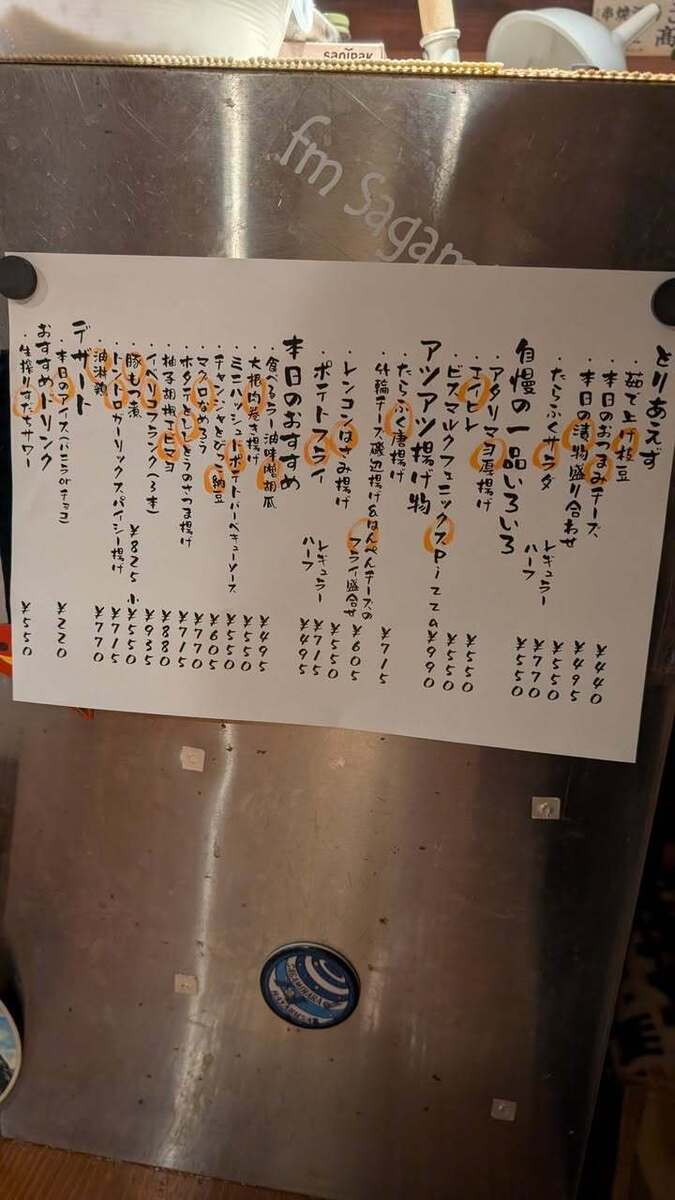 sanipak
fm Sagam
とりあえず
・茹で上げ枝豆 ¥440
・本日のおつまみチーズ ¥495
・本日の漬物盛り合わせ ¥550
・たらふくサラダ レギュラー ¥770
ハーフ ¥550
自慢の一品いろいろ
・アタリマヨ厚揚げ ¥550
・エイヒレ ¥550
・ビスマルクフェニックスPizza ¥990
アツアツ揚げ物
・たらふく唐揚げ ¥715
・竹輪チーズ磯辺揚げ&はんぺんチーズの
フライ盛合せ ¥605
・レンコンはさみ揚げ ¥550
・ポテトフライ レギュラー ¥715
ハーフ ¥495
本日のおすすめ
・食べるラー油味噌胡瓜 ¥495
・大根肉巻き揚げ ¥550
・ミニハッシュドポテトバーベキューソース ¥550
・チャンジャととびこ納豆 ¥605
・マグロなめろう ¥770
・ホタテとししとうのさつま揚げ ¥715
・柚子胡椒エビマヨ ¥880
・イベリコフランク(3本) ¥935
・豚もつ煮 ¥825 小 ¥550
・トントロガーリックスパイシー揚げ ¥715
・油淋鶏 ¥770
デザート
・本日のアイス(バニラorチョコ) ¥220
おすすめドリンク
・生搾りすだちサワー ¥550